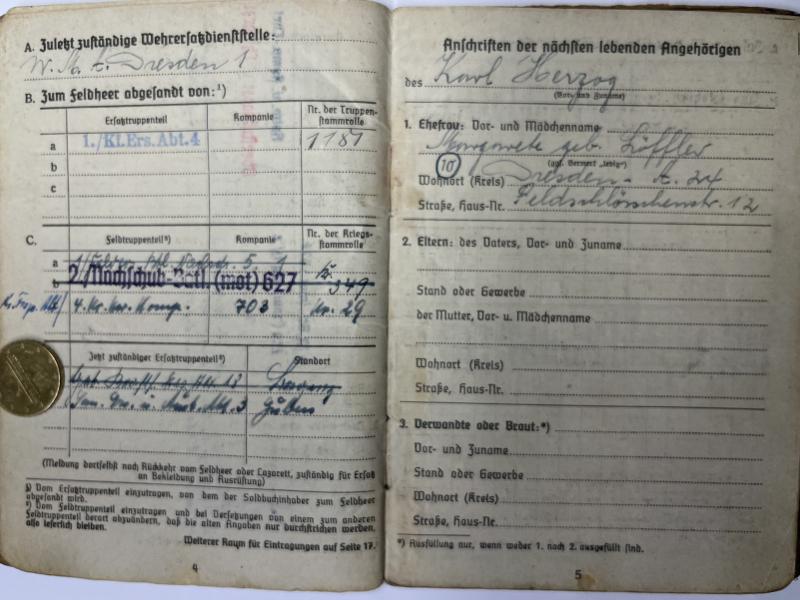 A. Zuletzt zuständige Wehrersatzdienststelle:
W. M. A. Dresden 1
B. Zum Feldheer abgesandt von:¹)
Ersatztruppenteil
Kompanie
Nr. der Truppen-
stammrolle
a
1./Kf.Ers.Abt.4
1181
b
c
C.
Feldtruppenteil²)
Kompanie
Nr. der Kriegs-
stammrolle
a
5. 1
b
2./Nachschub-Batl. (mot) 627
349
4. Kr. Kw. Komp.
703
Nr. 29
Jetzt zuständiger Ersatztruppenteil²)
Standort
13
u. Abt. 3
Guben
(Meldung dortselbst nach Rückkehr vom Feldheer oder Lazarett, zuständig für Ersatz
an Bekleidung und Ausrüstung)
¹) Vom Ersatztruppenteil einzutragen, von dem der Soldbuchinhaber zum Feldheer
abgesandt wird.
²) Vom Feldtruppenteil einzutragen und bei Versetzungen von einem zum anderen
Feldtruppenteil derart abzuändern, daß die alten Angaben nur durchstrichen werden,
also leserlich bleiben.
Weiterer Raum für Eintragungen auf Seite 17.
4
Anschriften der nächsten lebenden Angehörigen
des Karl Herzog
(Vor- und Zuname)
1. Ehefrau: Vor- und Mädchenname
Margarete geb. Löffler
(ggf. Vermerk „ledig")
10
Wohnort (Kreis) Dresden - A. 24
Straße, Haus-Nr. Feldschlösschenstr. 12
2. Eltern: des Vaters, Vor- und Zuname
Stand oder Gewerbe
der Mutter, Vor- u. Mädchenname
Wohnort (Kreis)
Straße, Haus-Nr.
3. Verwandte oder Braut:*)
Vor- und Zuname
Stand oder Gewerbe
Wohnort (Kreis)
Straße, Haus-Nr.
*) Ausfüllung nur, wenn weder 1. noch 2. ausgefüllt sind.
5